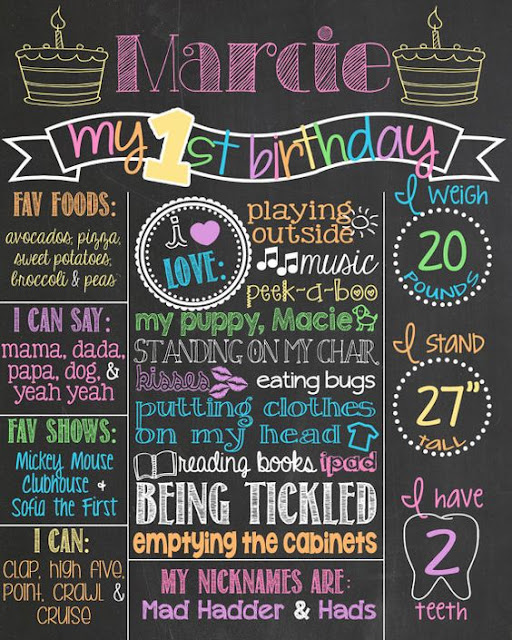 Marcie
my 1st birthday
FAV FOODS:
avocados, pizza,
sweet potatoes,
broccoli & peas
I CAN SAY:
mama, dada,
papa, dog, &
yeah yeah
FAV SHOWS:
Mickey Mouse
Clubhouse &
Sofia the First
I CAN:
CLAP, HIGH FIVE,
POINT, CRAWL &
CRUISE
i
LOVE:
playing
outside
music
peek-a-boo
my puppy, Macie
STANDING ON MY CHAIR
kisses eating bugs
putting clothes
on my head
reading books ipad
BEING TICKLED
emptying the cabinets
MY NICKNAMES ARE:
Mad Hadder & Hads
I WEIGH
20
POUNDS
I STAND
27"
TALL
I have
2
teeth